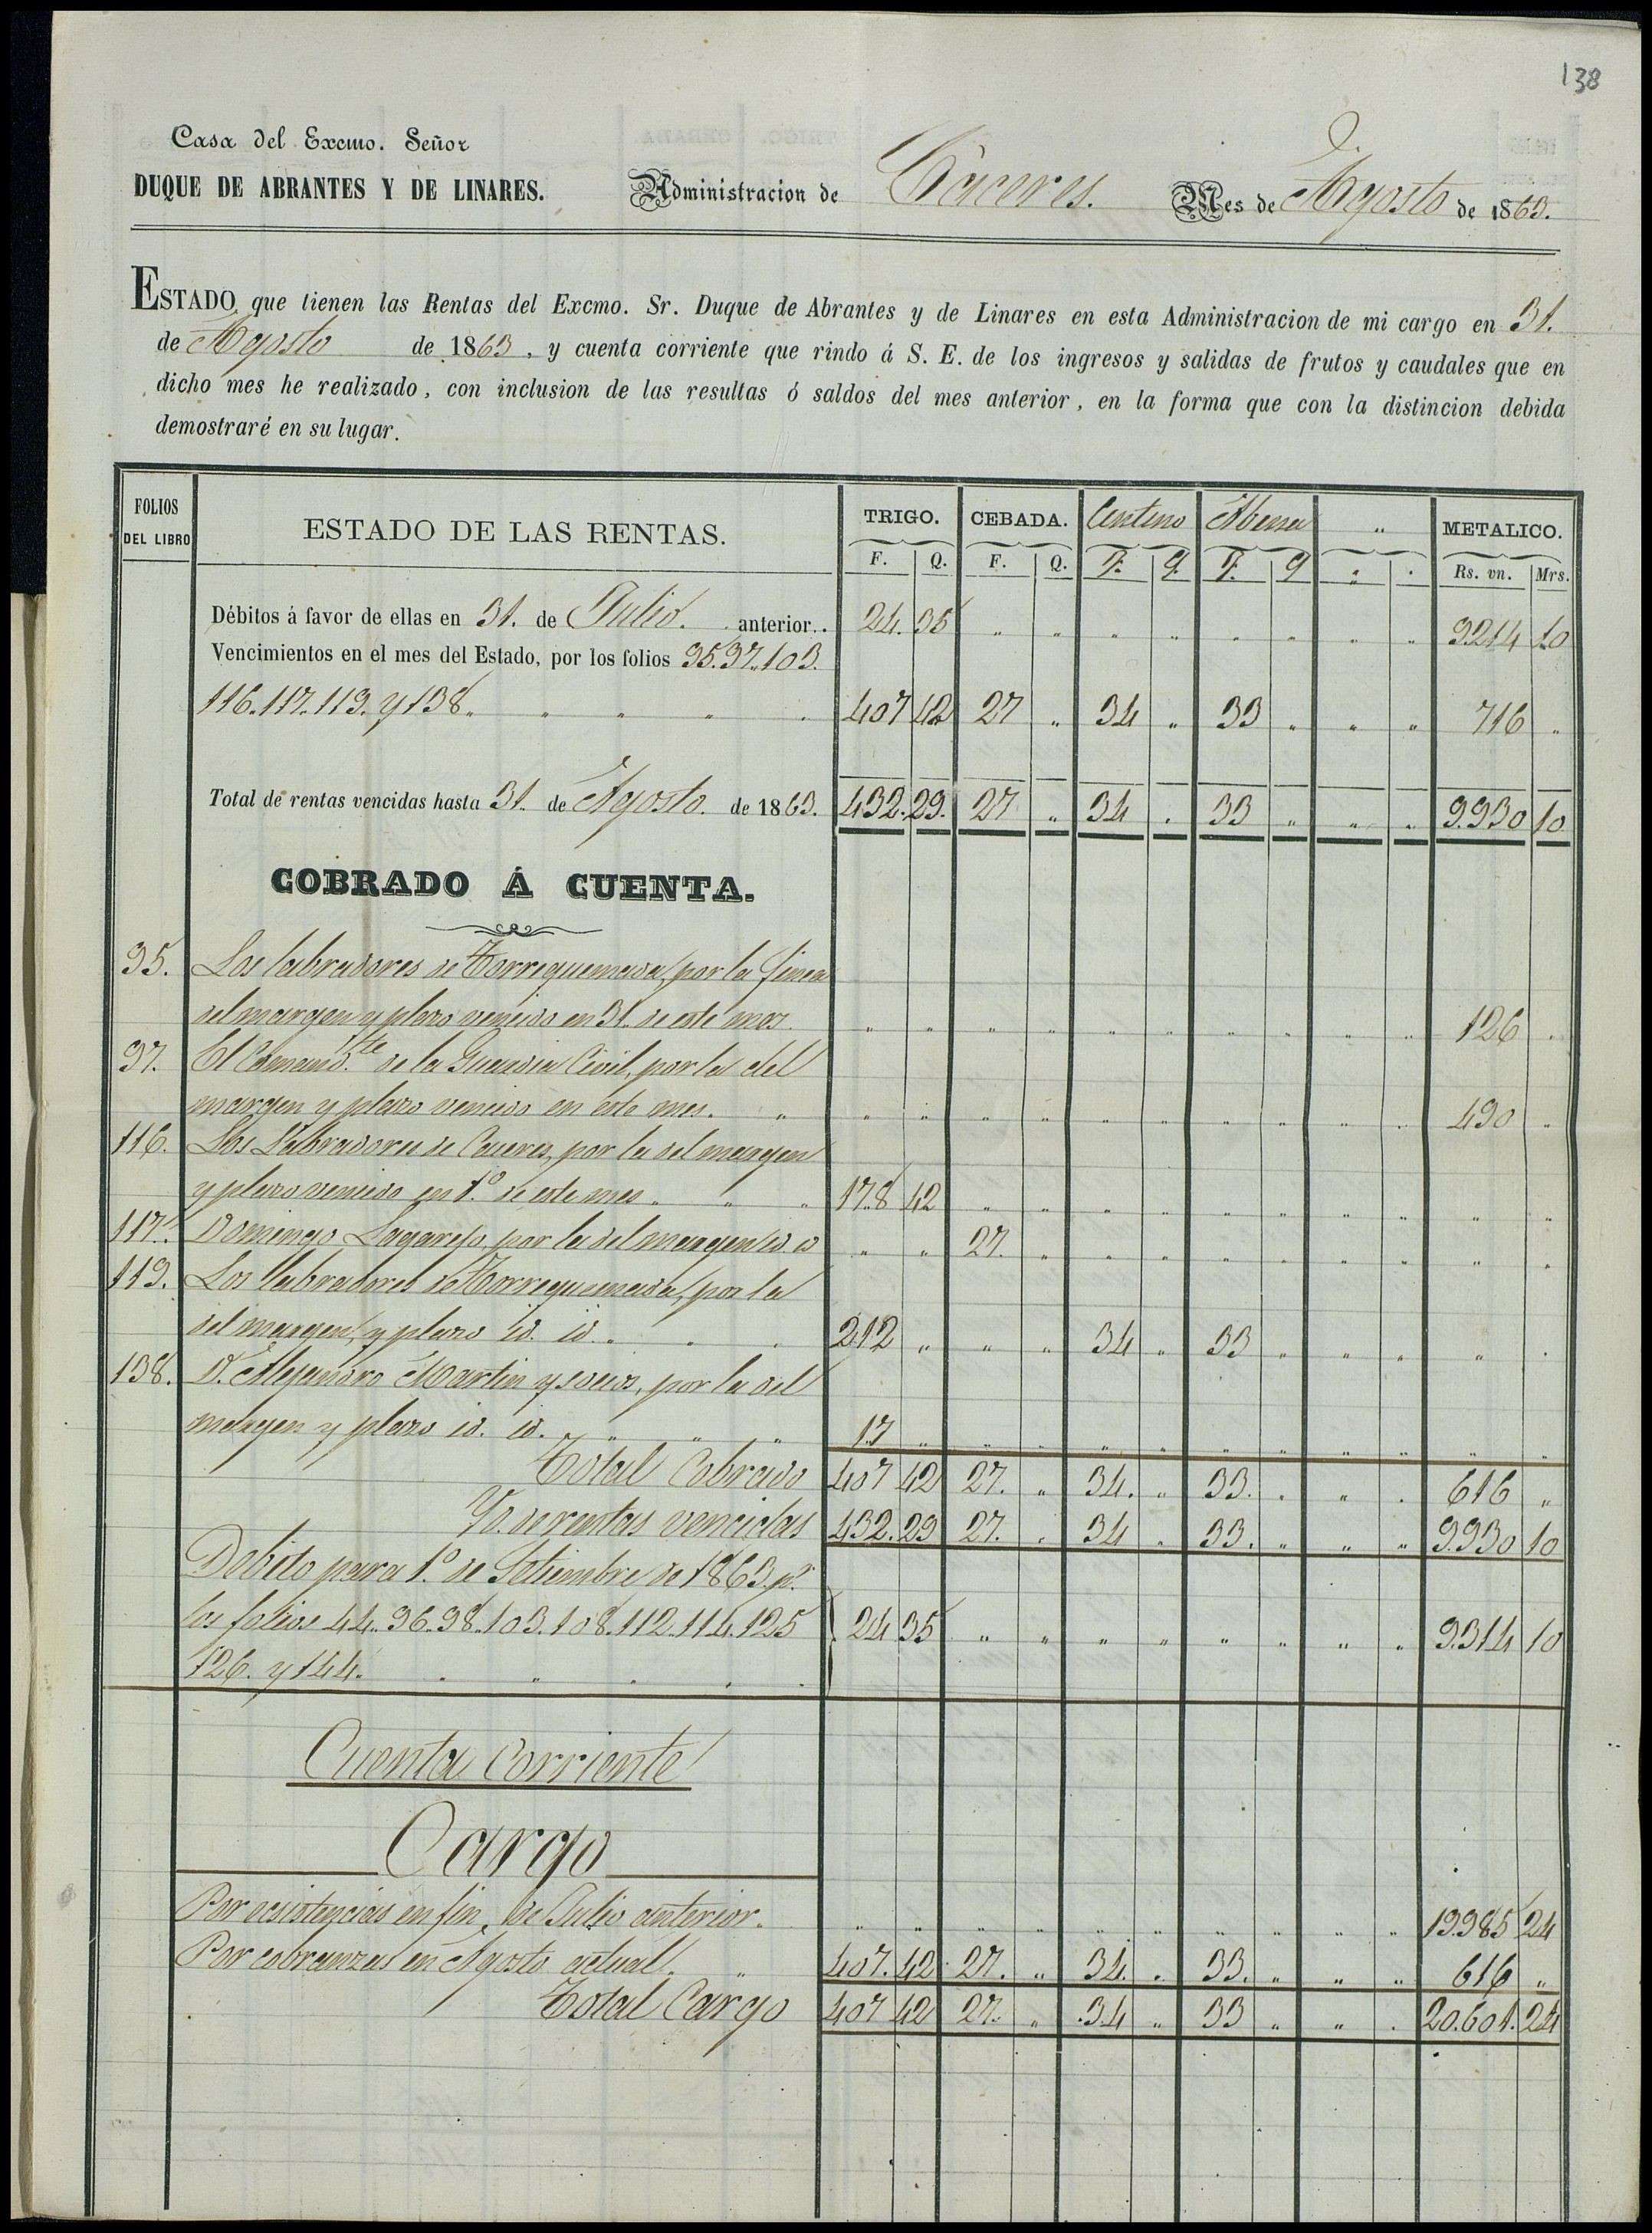 138
Casa del Excmo. Señor
DUQUE DE ABRANTES Y DE LINARES. Administracion de Cáceres. Mes de Agosto de 1863.
ESTADO que tienen las Rentas del Excmo. Sr. Duque de Abrantes y de Linares en esta Administracion de mi cargo en 31.
de Agosto de 1863, y cuenta corriente que rindo á S. E. de los ingresos y salidas de frutos y caudales que en
dicho mes he realizado, con inclusion de las resultas ó saldos del mes anterior, en la forma que con la distincion debida
demostraré en su lugar.
FOLIOS DEL LIBRO ESTADO DE LAS RENTAS. TRIGO. CEBADA. Centeno Abena " METALICO.
F. Q. F. Q. F. Q. F. Q " . Rs. vn. Mrs.
Débitos á favor de ellas en 31. de Julio. anterior.. 24. 35 " " " " " " " " 9.214 10
Vencimientos en el mes del Estado, por los folios 95.97.103.
116.117.119. y 138. " " " . 407 42 27 " 34 " 33 " " " 716 "
Total de rentas vencidas hasta 31. de Agosto. de 1863. 432. 29. 27 " 34 . 33 " " . 9.930 10
COBRADO Á CUENTA.
95. Los labradores de Torrequemada, por la finca
del margen y plazo vencido en 31. de este mes. " " " " " " " " " " 126 .
97. El Comand.te de la Guardia Civil, por la del
margen y plazo vencido en este mes. " " " " " " " " " " . 490 "
116. Los Labradores de Caceres, por la del margen
y plazo vencido en 1.º de este mes. " " 178 42 " " " " " " " " " "
117. Domingo Lagarejo, por la del margen id. id " " 27. " " " " " " " " "
119. Los labradores de Torrequemada, por la
del margen, y plazo id. id. . . 212 " " " 34 " 33 " " " " .
138. D. Alejandro Martin y socios, por la del
margen y plazo id. id. " " " 17 " " " " " " " " " " "
Total Cobrado 407 42 27. " 34. " 33. . " . 616 "
Yd. de rentas vencidas 432. 29 27. . 34 . 33. " " " 9.930 10
Debito para 1.º de Setiembre de 1863. p.r
los folios 44..96.98.103.108.112.114.125 24 35 " " " " " " " " 9.314 10
126. y 144. . " . . .
Cuenta Corriente
Cargo
Por ecsistencias en fin de Julio anterior. " " " " " " " " " " 19.985 24
Por cobranzas en Agosto actual. " 407. 42 27. " 34. . 33. " " " 616 "
Total Cargo 407 42 27. " 34 " 33 " " . 20.601. 24